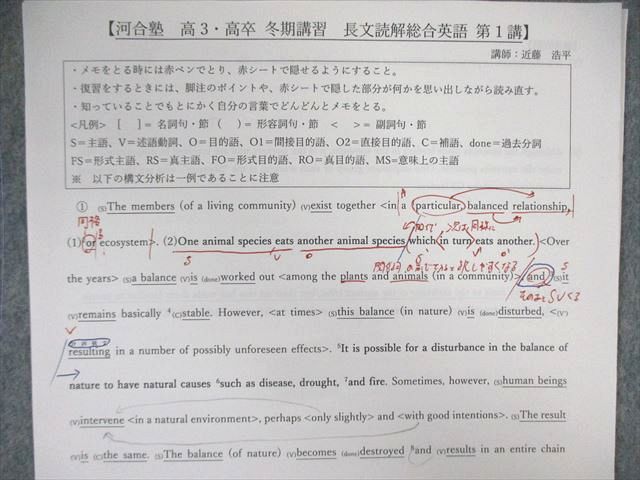 【河合塾　高3・高卒 冬期講習　長文読解総合英語 第1講】
講師：近藤　浩平
・メモをとる時には赤ペンでとり、赤シートで隠せるようにすること。
・復習をするときには、脚注のポイントや、赤シートで隠した部分が何かを思い出しながら読み直す。
・知っていることでもとにかく自分の言葉でどんどんとメモをとる。
<凡例>　[　]＝名詞句・節　(　)＝形容詞句・節　<　>＝副詞句・節
S＝主語、V＝述語動詞、O＝目的語、O1＝間接目的語、O2＝直接目的語、C＝補語、done＝過去分詞
FS＝形式主語、RS＝真主語、FO＝形式目的語、RO＝真目的語、MS＝意味上の主語
※　以下の構文分析は一例であることに注意
① (S)The members (of a living community) (V)exist together <in a (particular, balanced relationship,
同格
(1) or ecosystem>. (2)One animal species eats another animal species which in turn eats another. <Over
S V O
the years> (S)a balance (V)is (done)worked out <among the plants and animals (in a community)> and (S)it
S
(V)remains basically 4(C)stable. However, <at times> (S)this balance (in nature) (V)is (done)disturbed, <(V')
V
resulting in a number of possibly unforeseen effects>. 5It is possible for a disturbance in the balance of
nature to have natural causes 6such as disease, drought, 7and fire. Sometimes, however, (S)human beings
(V)intervene <in a natural environment>, perhaps <only slightly> and <with good intentions>. (S)The result
(V)is (C)the same. (S)The balance (of nature) (V)becomes (done)destroyed 8and (V)results in an entire chain